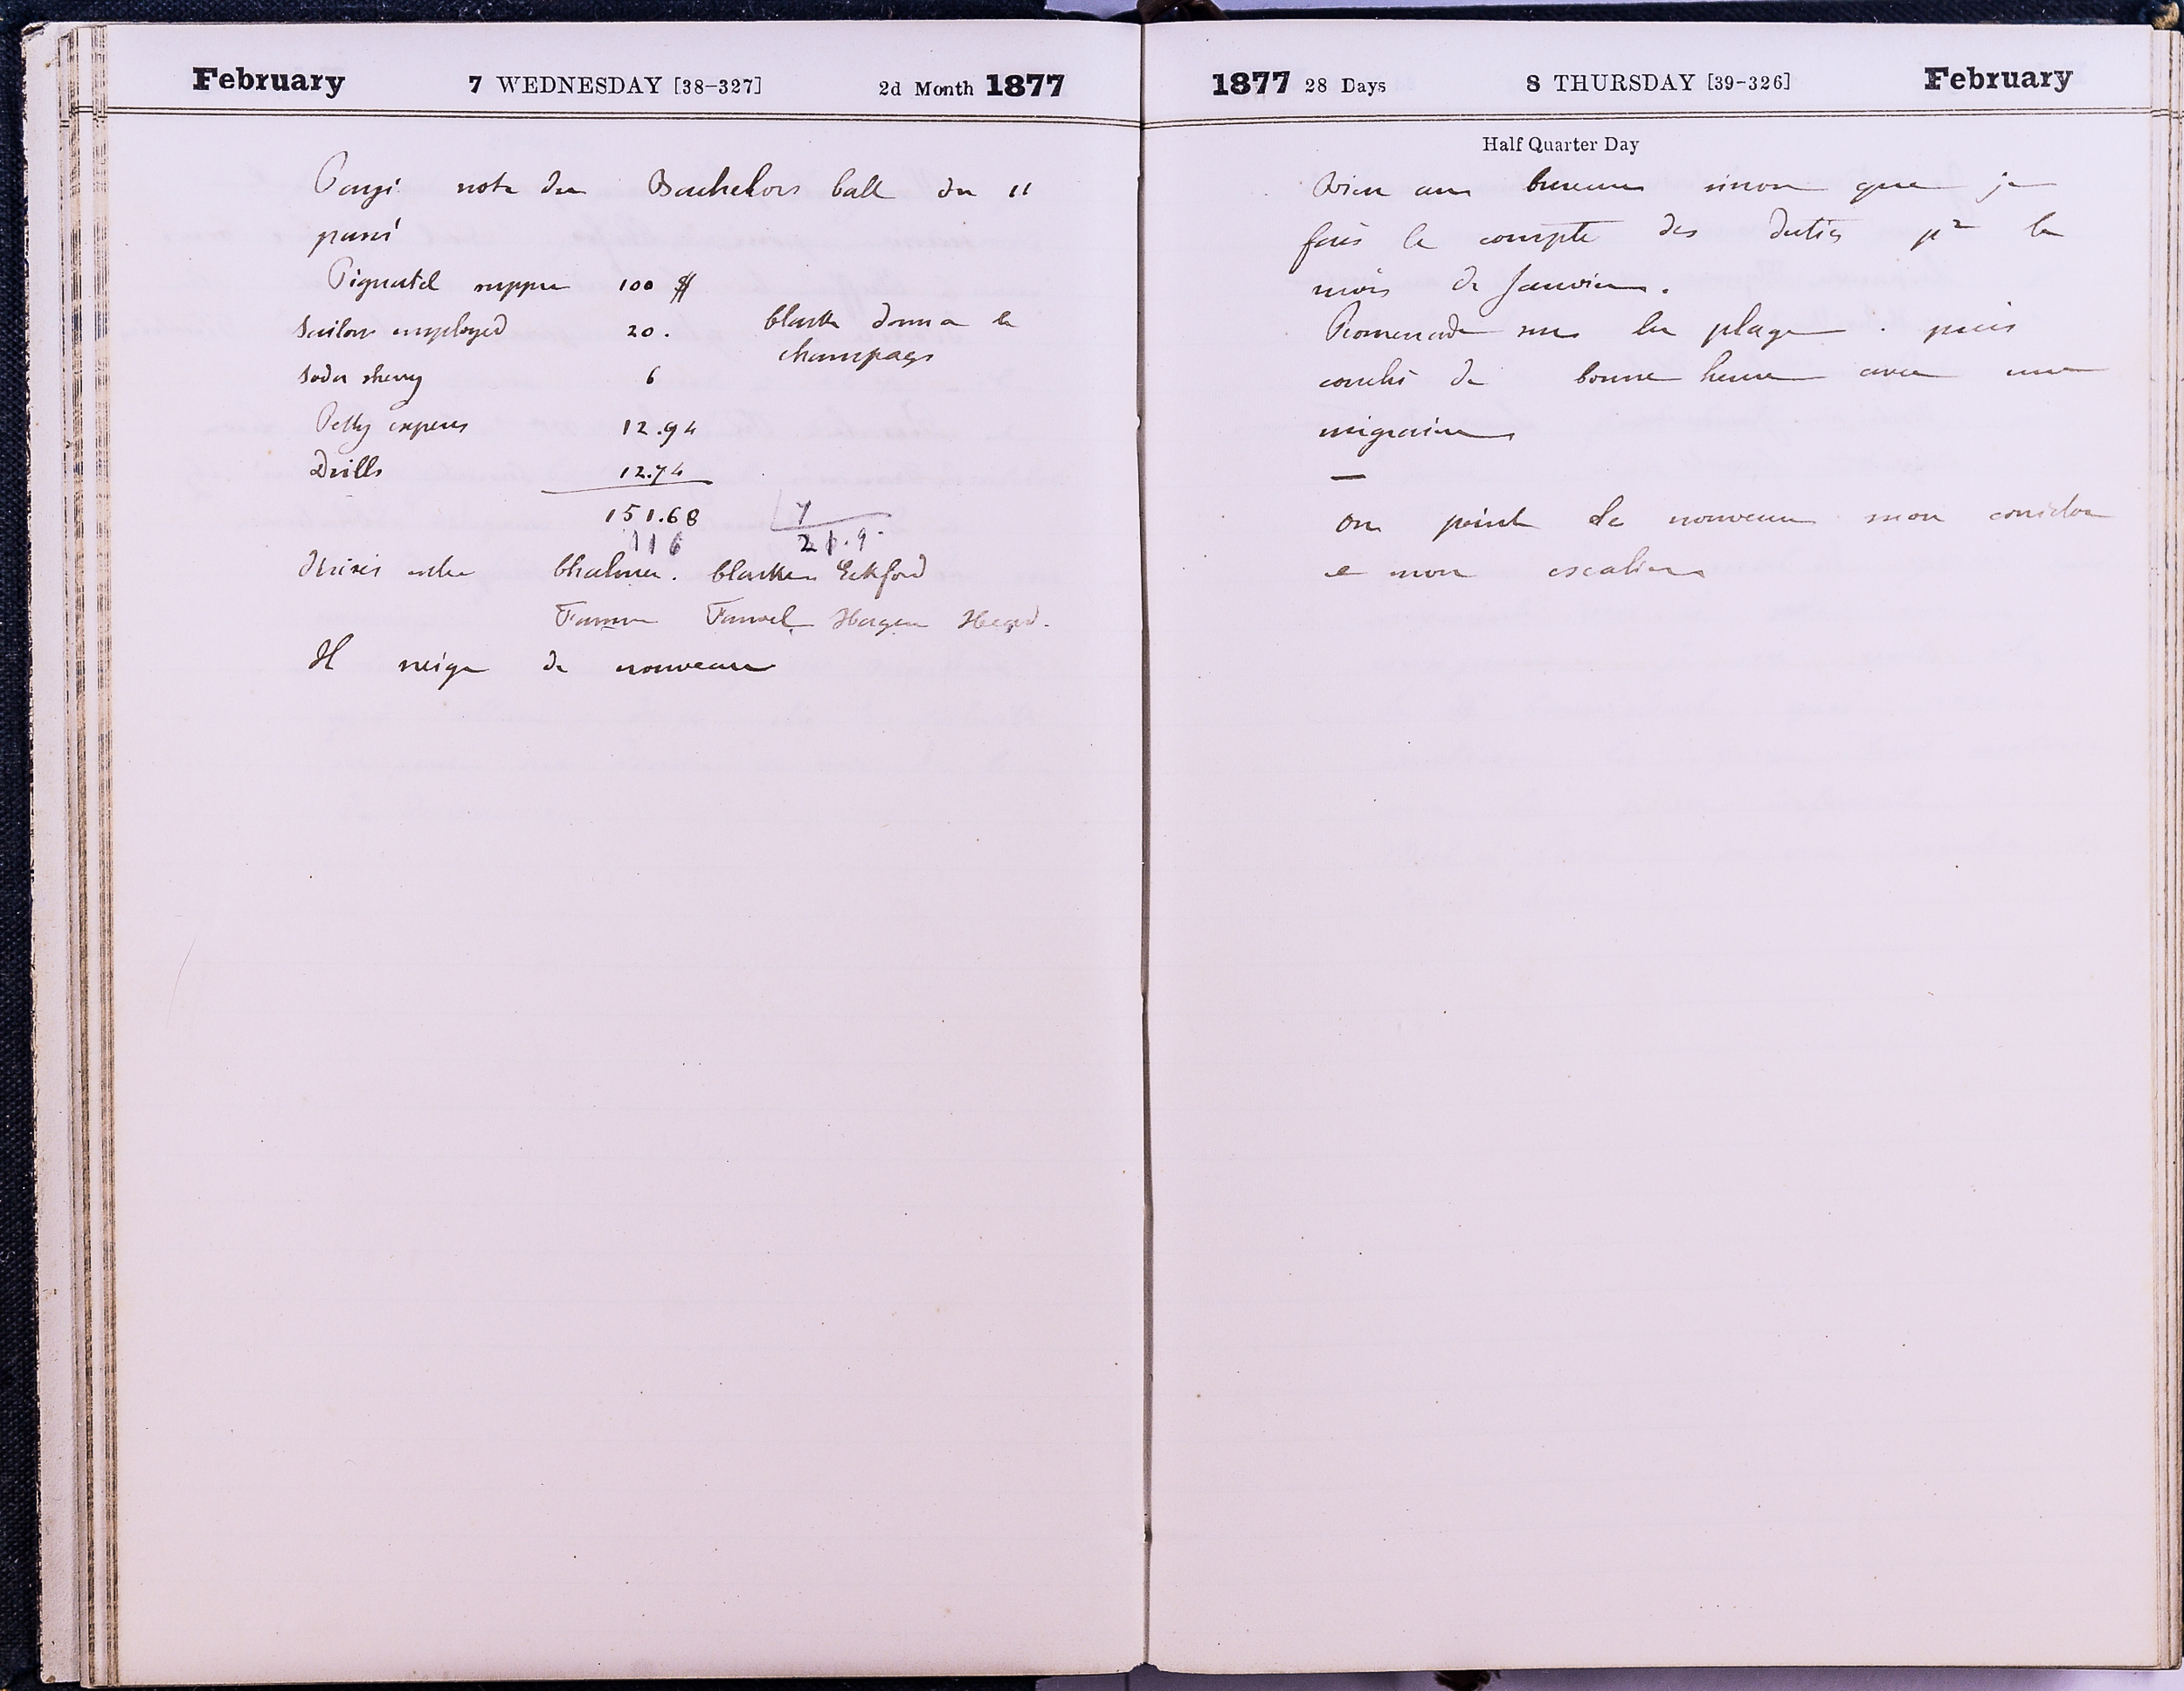 February 7 WEDNESDAY [38-327] 2d Month 1877
Payé note du Bachelors ball du 11
passé
Pignatel supper 100 $
Sailors employed 20. Clarke donna le
champags
Soda sherry 6
Petty expens 12.94
Drills 12.74
151.68 7
116 21.9.
Divisés entre Chalmer. Clarke Eckford
Farmer Hagen
Il neige de nouveau
1877 28 Days 8 THURSDAY [39-326] February
Half Quarter Day
Rien au bureau sinon que je
fais le compte des duties pr le
mois de Janvier.
Promenade sur la plage. puis
couché de bonne heure avec une
migraine
—
On peint de nouveau mon corridor
e mon escalier